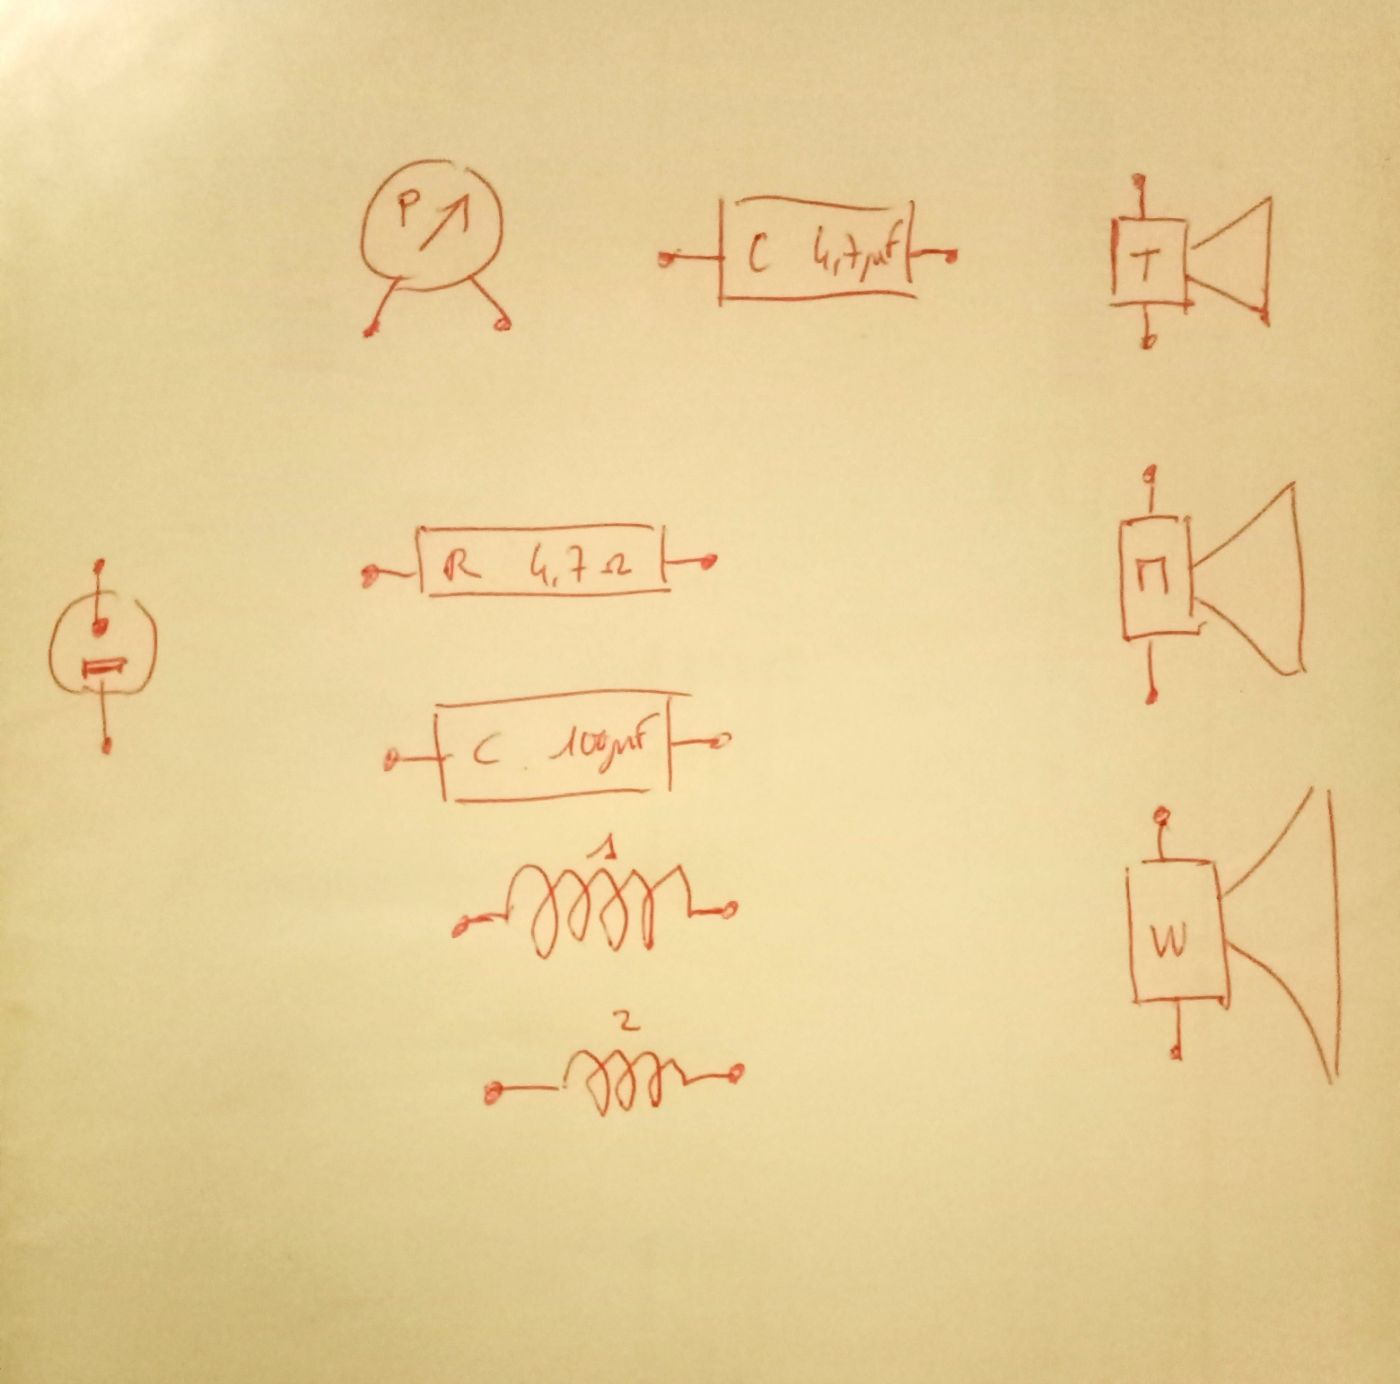 P
C 4,7µF
T
R 4,7Ω
П
C 100µF
1
W
2